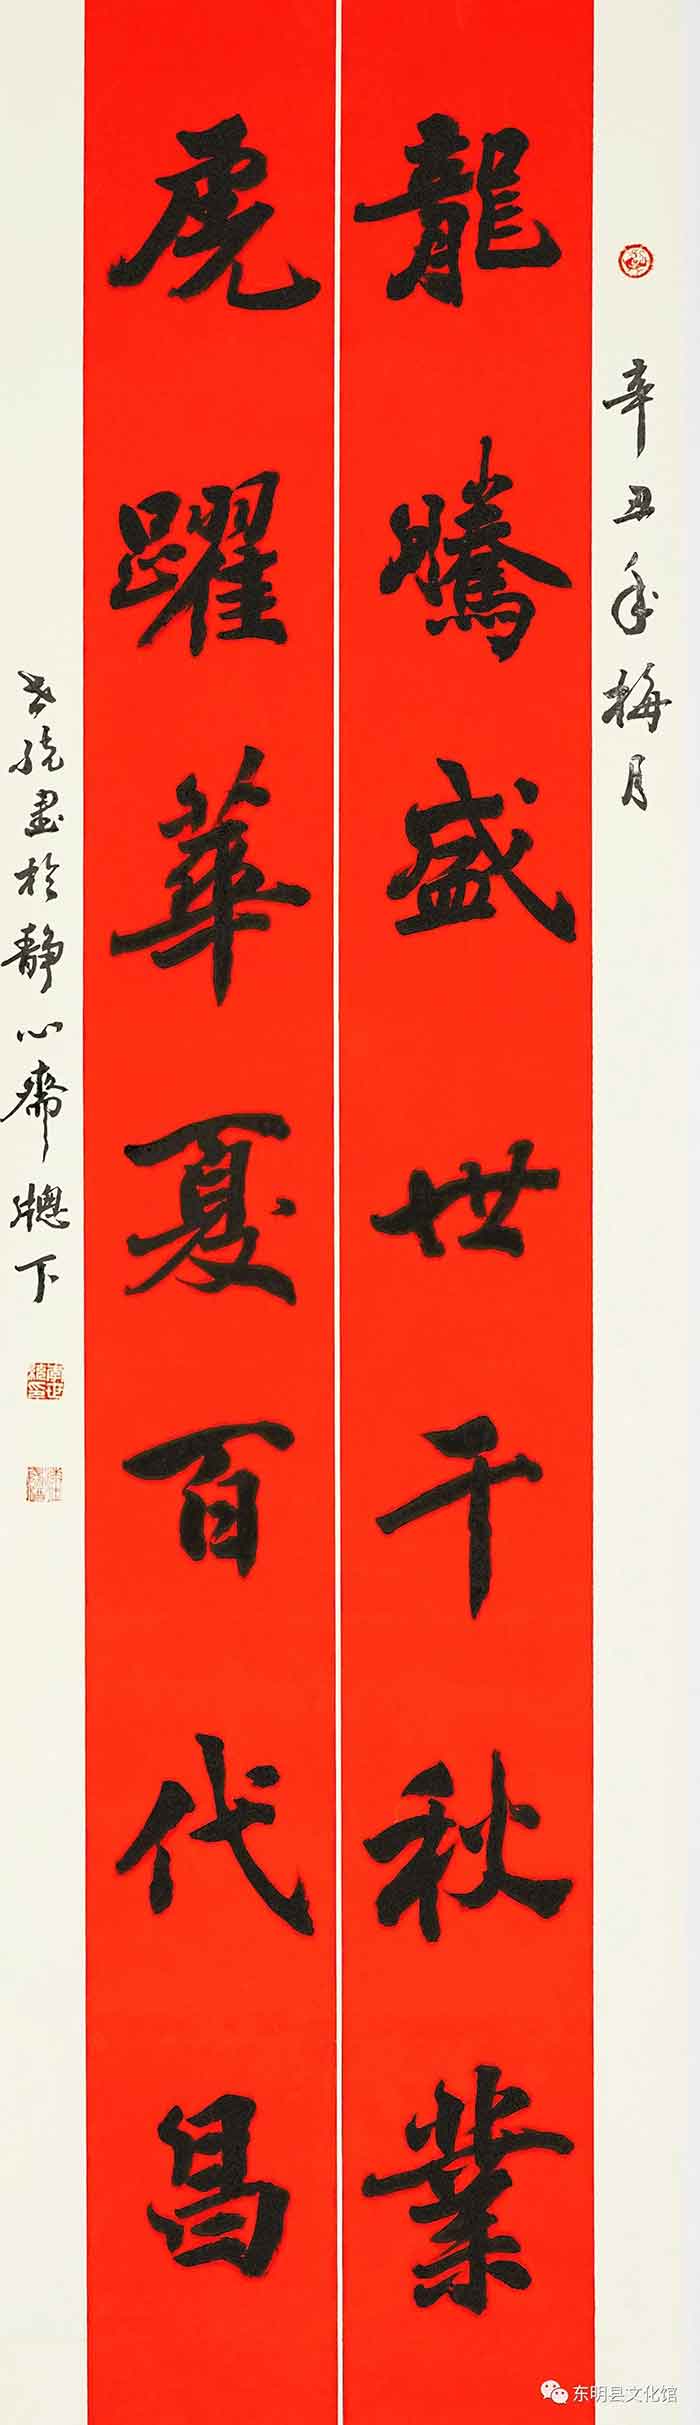 辛丑年梅月
龍騰盛世千秋業
虎躍華夏百代昌
書於靜心齋牕下
东明县文化馆